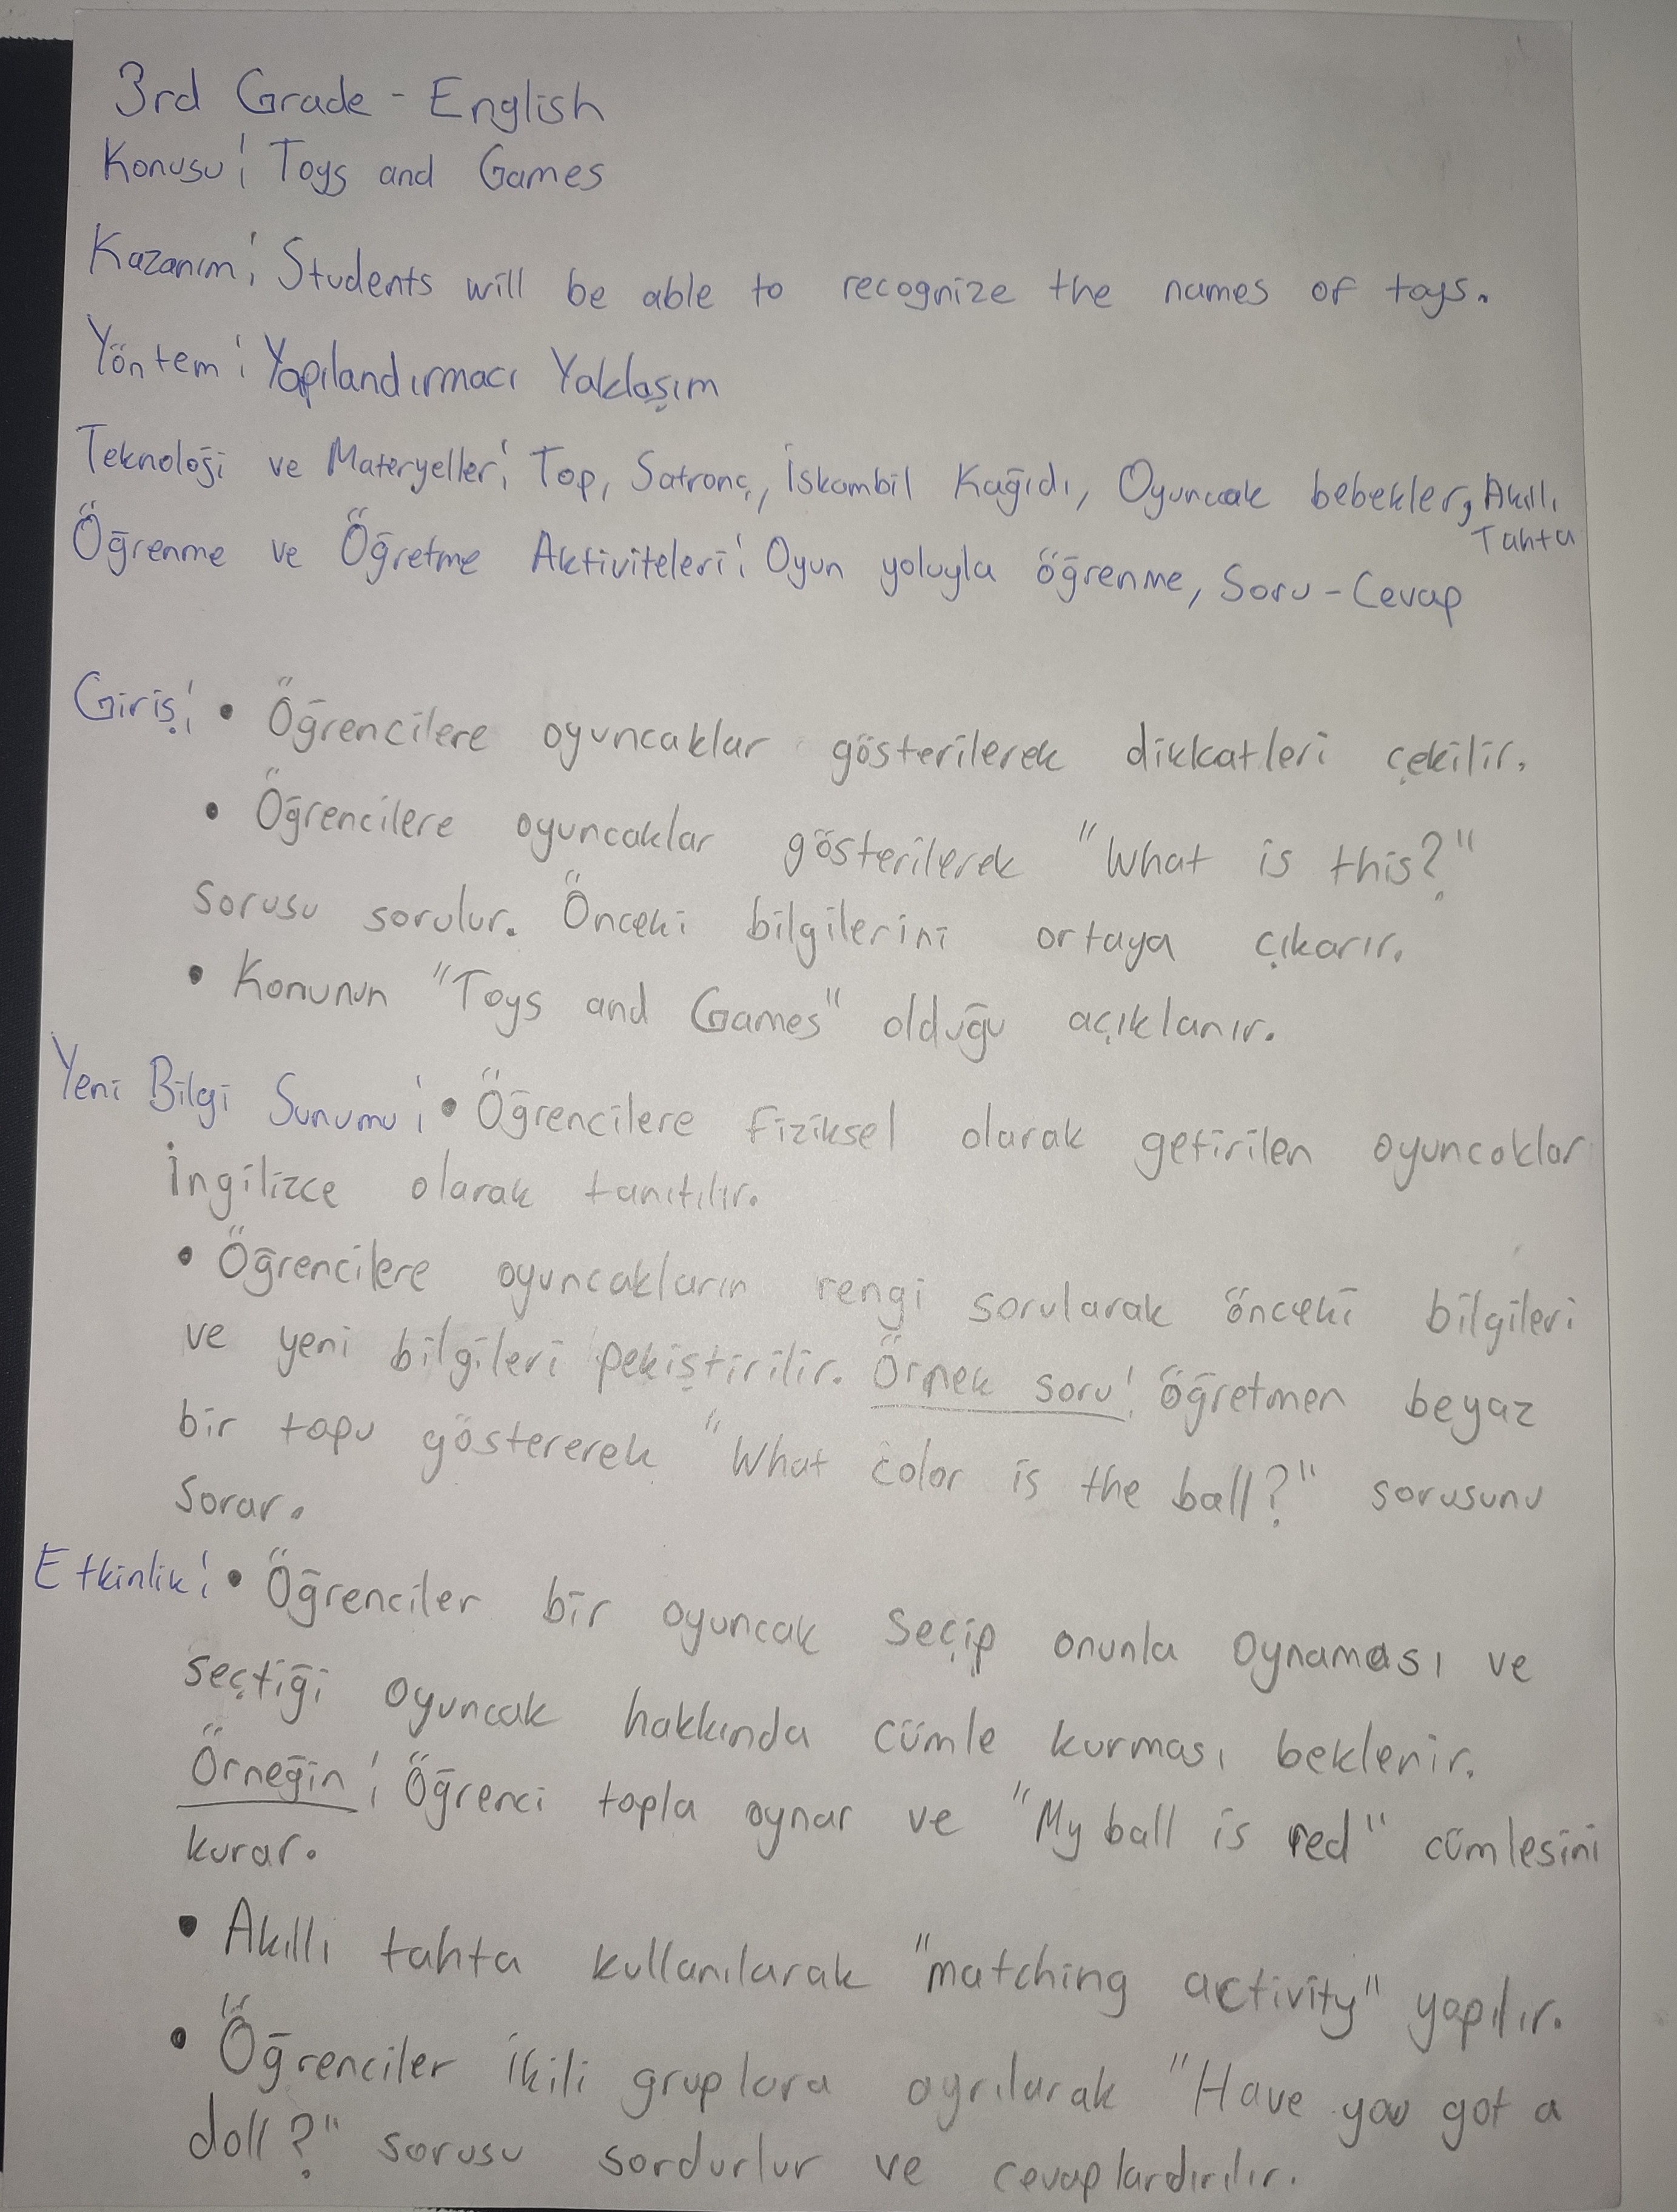 3rd Grade - English
Konusu: Toys and Games
Kazanım: Students will be able to recognize the names of toys.
Yöntem: Yapılandırmacı Yaklaşım
Teknoloği ve Materyeller: Top, Satranç, İskambil Kağıdı, Oyuncak bebekler, Akıllı
Tahta
Öğrenme ve Öğretme Aktiviteleri: Oyun yoluyla öğrenme, Soru-Cevap
Giriş: • Öğrencilere oyuncaklar gösterilerek dikkatleri çekilir.
• Öğrencilere oyuncaklar gösterilerek "What is this?"
sorusu sorulur. Önceki bilgilerini ortaya çıkarır.
• Konunun "Toys and Games" olduğu açıklanır.
Yeni Bilgi Sunumu: • Öğrencilere fiziksel olarak getirilen oyuncaklar
İngilizce olarak tanıtılır.
• Öğrencilere oyuncakların rengi sorularak önceki bilgileri
ve yeni bilgileri pekiştirilir. Örnek soru: Öğretmen beyaz
bir topu göstererek "What color is the ball?" sorusunu
sorar.
Etkinlik: • Öğrenciler bir oyuncak seçip onunla oynaması ve
seçtiği oyuncak hakkında cümle kurması beklenir.
Örneğin: Öğrenci topla oynar ve "My ball is red" cümlesini
kurar.
• Akıllı tahta kullanılarak "matching activity" yapılır.
• Öğrenciler ikili gruplara ayrılarak "Have you got a
doll?" sorusu sordurlur ve cevaplardırılır.